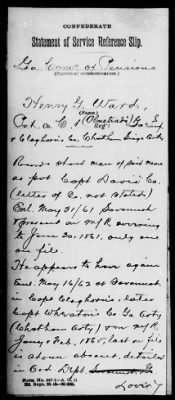 CONFEDERATE
Statement of Service Reference Slip.
Ga Comr of Pensions
Henry G. Ward,
(Name.)
Pvt. Co. C, 1 (Olmstead's) Ga Inf
& Claghorn's Co. Chatham Siege Arty
Records show man of this name
as pvt Capt Davis Co.
(letter of Co. not stated)
Enl. May 31/61 Savannah
& present on M/R covering
to June 30, 1861, only one
on file.
He appears to have again
Enl. May 14/62 at Savannah
in Capt Claghorn's, later
Capt Wheaton's Co Ga Arty
(Chatham Arty) & on M/R
Jany & Feb. 1865, last on file
is shown absent, detailed
in Ord. Dept.